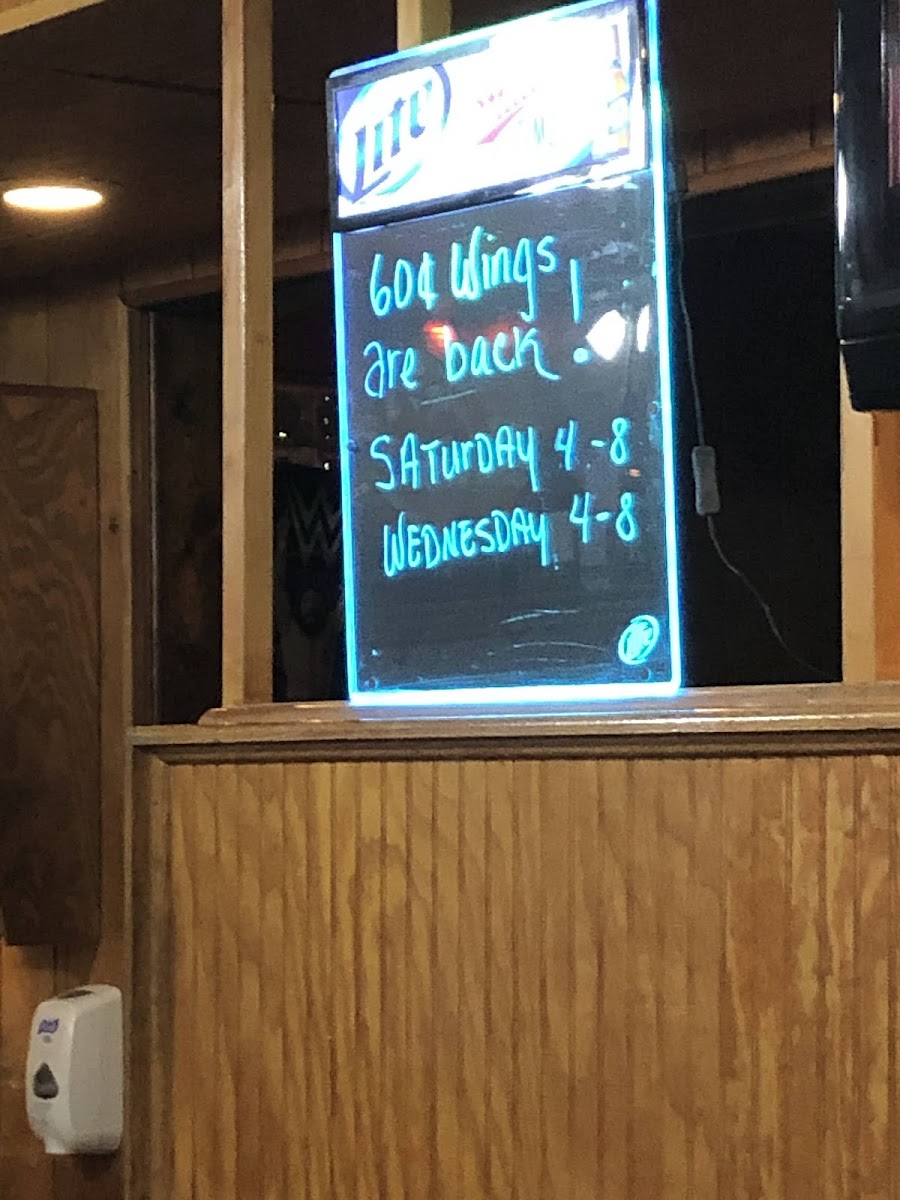 Lite
60¢ Wings
are back!
SATURDAY 4-8
WEDNESDAY 4-8
Lite
PURELL
W